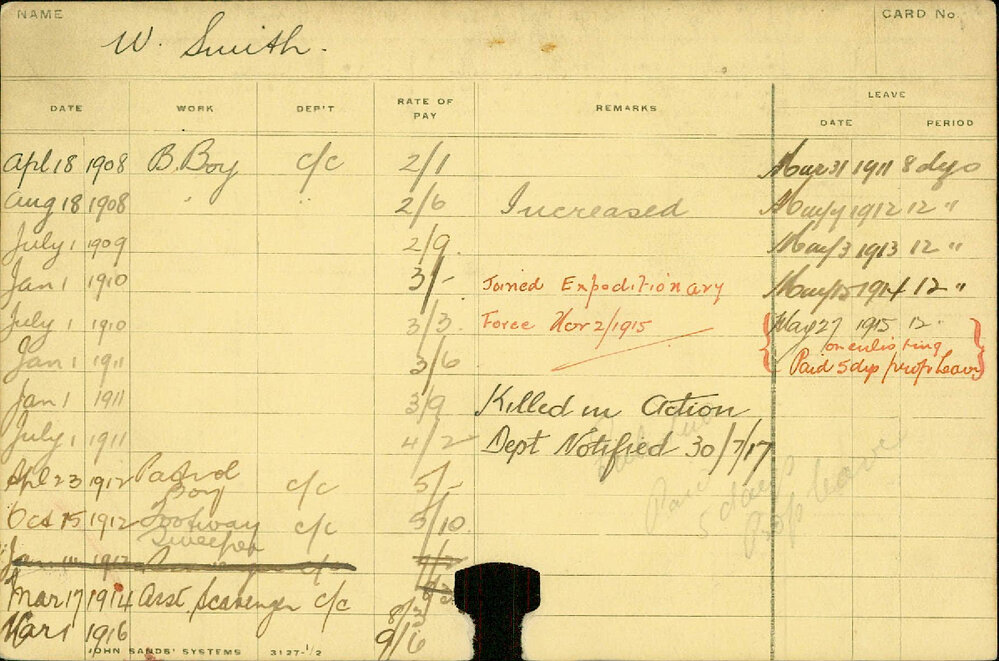 NAME
W. Smith.
CARD No.
DATE WORK DEP'T RATE OF PAY REMARKS LEAVE
DATE PERIOD
Apl 18 1908 B. Boy c/c 2/1 Mar 31 1911 8 dys
Aug 18 1908 " 2/6 Increased May 4 1912 12 "
July 1 1909 2/9 May 3 1913 12 "
Jan 1 1910 3/- Joined Expeditionary May 15 1914 12 "
July 1 1910 3/3 Force Nov 2/1915 May 27 1915 12
on enlisting
Jan 1 1911 3/6 Paid 5 dys prop Leave
Jan 1 1911 3/9 Killed in Action
July 1 1911 4/2 Dept Notified 30/7/17
Apl 23 1912 Patrol Boy c/c 5/-
Paid
5 days
Prop leave
Oct 15 1912 Footway Sweeper c/c 5/10
Jan 1913 c/c
Mar 17 1914 Asst. Scavenger c/c 8/3
Mar 1 1916 9/6
JOHN SANDS' SYSTEMS 3127-1/2